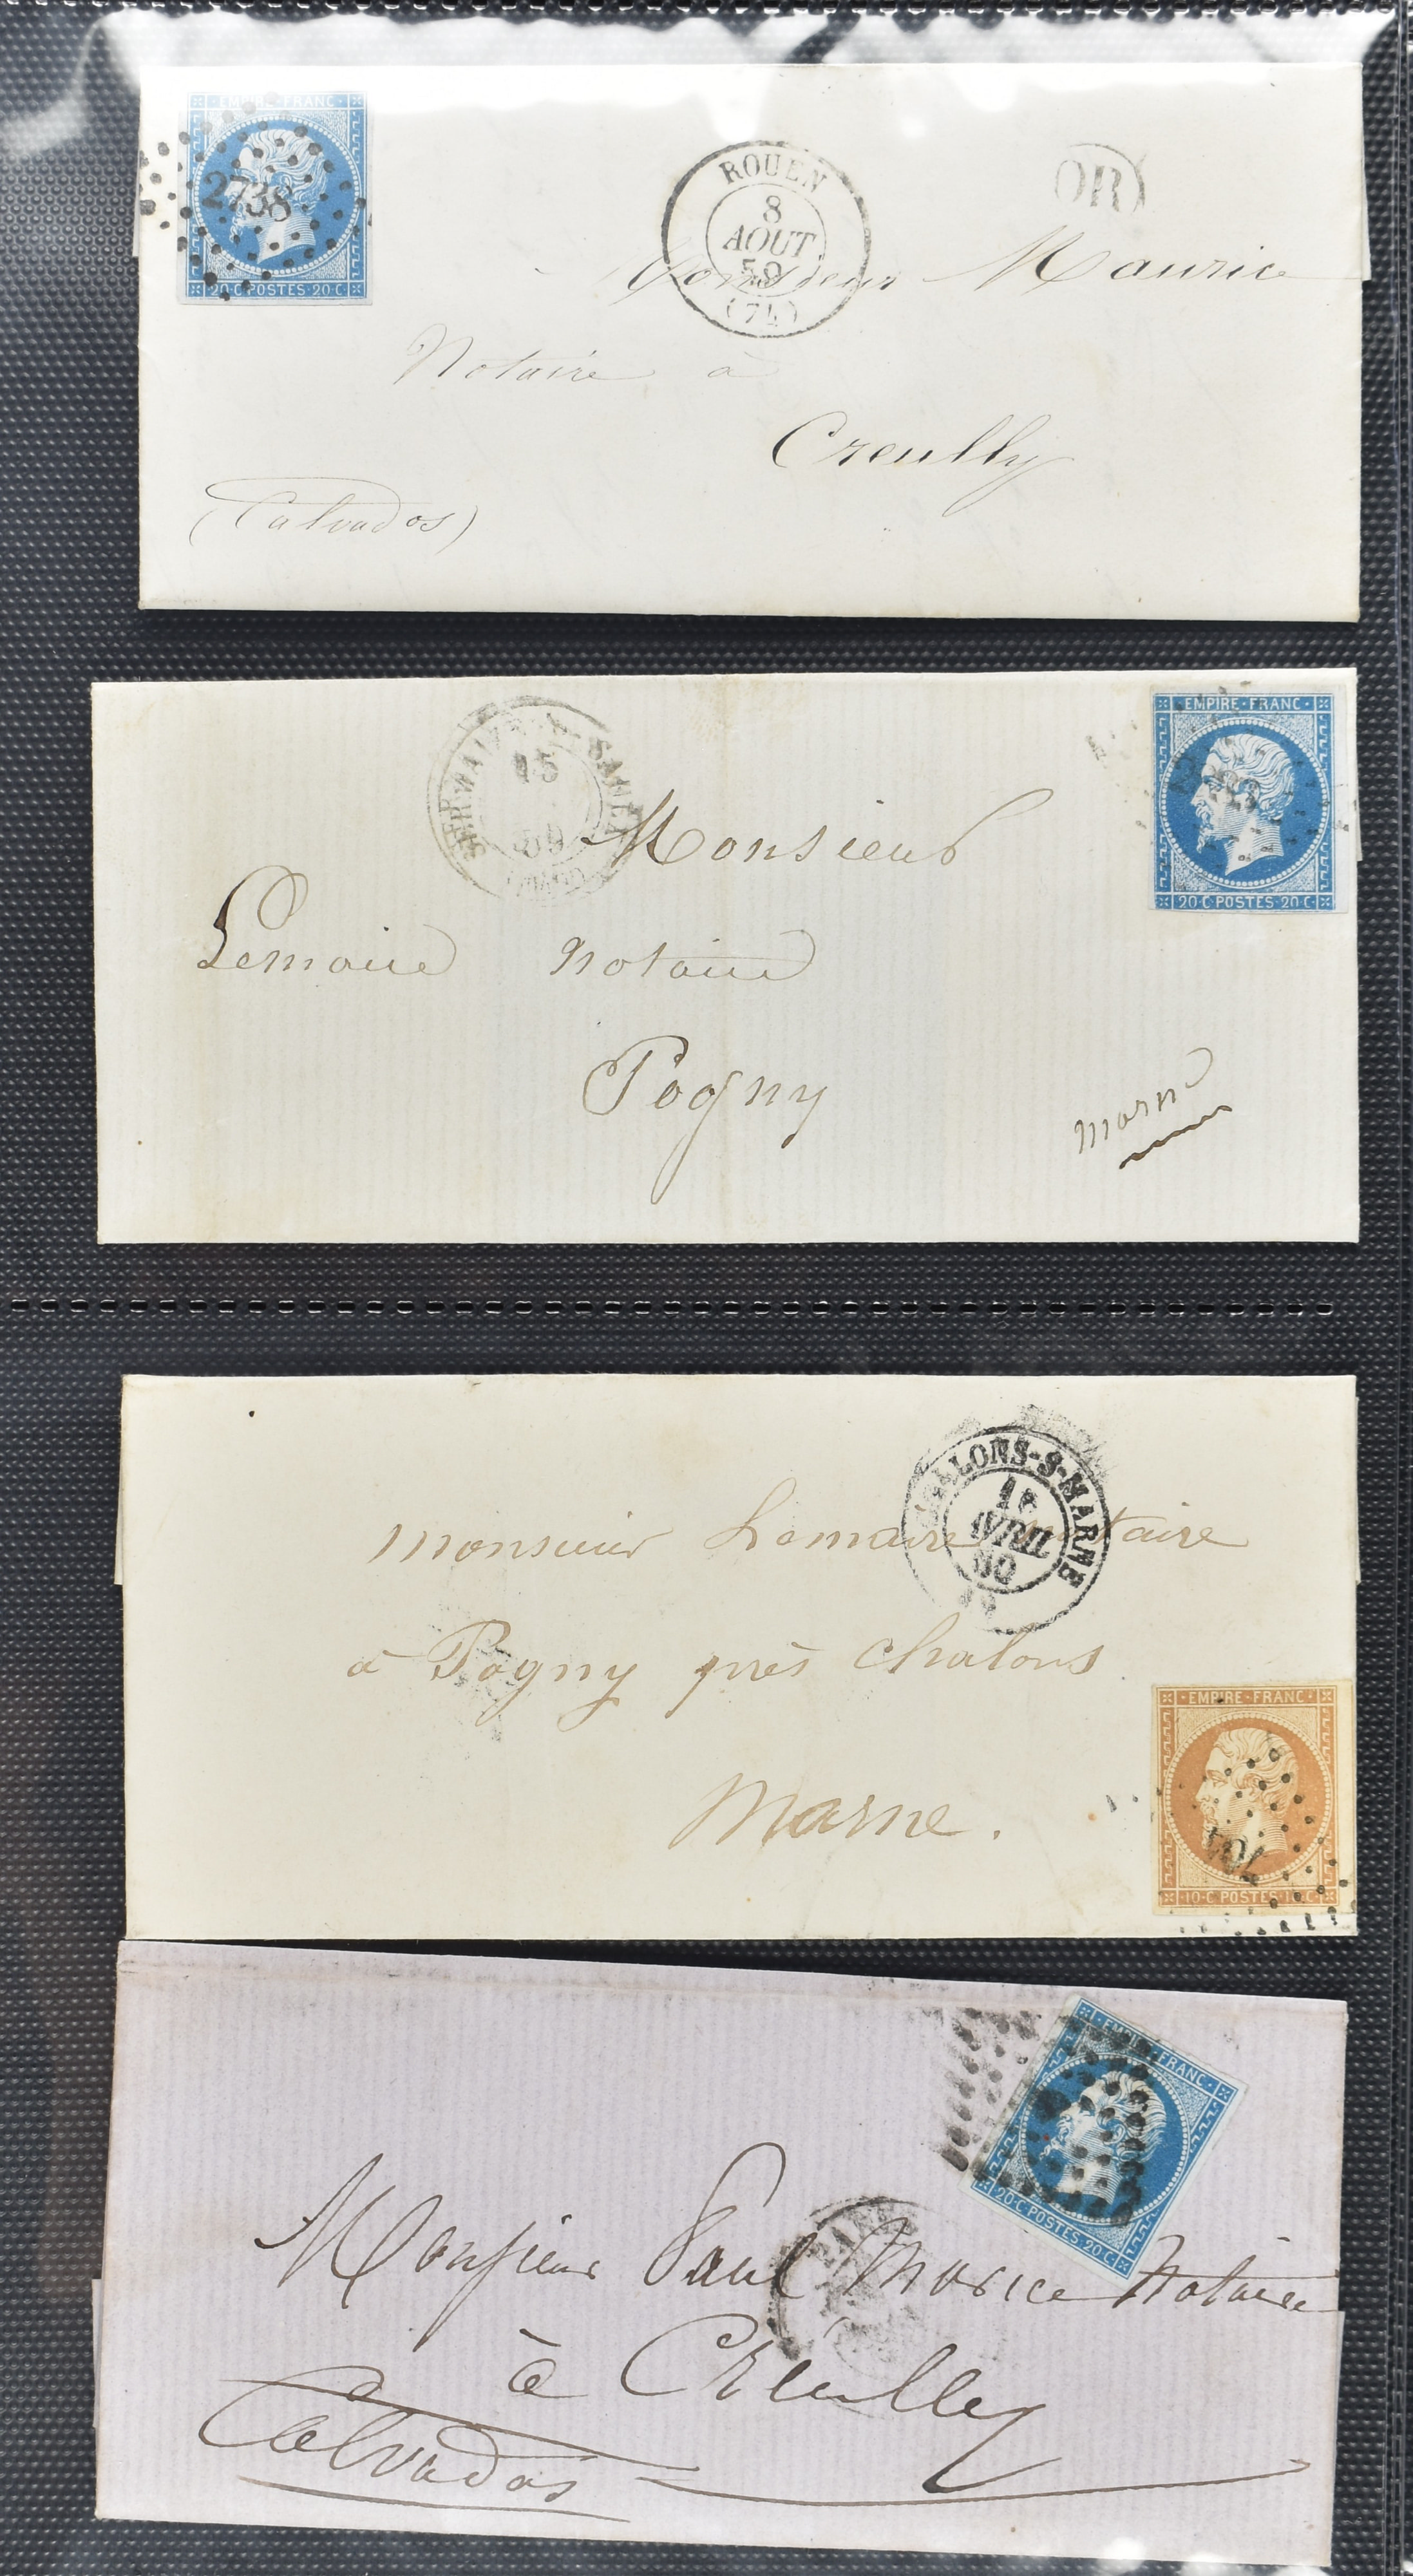 EMPIRE · FRANC
2738
20 · C · POSTES · 20 · C
ROUEN
8
AOUT
59
(74)
OR
Monsieur Maurice
Notaire à
Creully
(Calvados)
15
59
EMPIRE · FRANC
20 · C · POSTES · 20 · C
Monsieur
Lemaire notaire
Pogny
Marne
CHALONS-S-MARNE
AVRIL
60
Monsieur Lemaire notaire
à Pogny près Chalons
Marne.
EMPIRE · FRANC
704
10 · C · POSTES · 10 · C
EMPIRE · FRANC
20 · C · POSTES · 20 · C
Monsieur Paul Morice Notaire
à Creully
Calvados